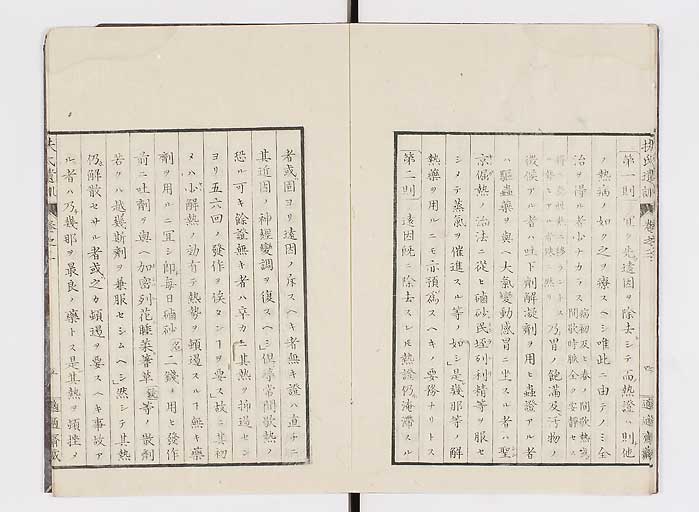 扶氏遺訓 巻之三
第一則 宜ク先遠因ヲ除去シテ而熱證ハ則他
ノ熱病ノ如ク之ヲ療スヘシ唯此ニ由テノミ全
治ヲ得ル者少ナカラス
乃胃ノ飽満及汚物ノ
徴候アル者ハ吐下劑解凝劑ヲ用ヒ蟲證アル者
ハ驅蟲藥ヲ與ヘ大氣變動感冒ニ坐スル者ハ聖
京倔熱ノ治法ニ從ヒ磠砂民埊列利精等ヲ服セ
シメテ蒸氣ヲ催進スル等ノ如シ是幾那等ノ解
熱藥ヲ用ルニモ亦預爲スヘキノ要務ナリトス
第二則 遠因既ニ除去スレ𪜈熱證仍淹滯スル
適適齋藏
者或固ヨリ遠因ノ斥スヘキ者無キ證ハ直チニ
其近因ノ神經變調ヲ復スヘシ但尋常間歇熱ノ
恐ル可キ餘證無キ者ハ卒カニ其熱ヲ抑遏セシ
ヨリ五六回ノ發作ヲ俟タンヿヲ要ス故ニ其初
メハ少シク解熱ノ功有テ熱勢ヲ頓遏スルヿ無キ藥
劑ヲ用ルニ宜シ即毎日磠砂二錢ヲ用ヒ發作
前ニ吐劑ヲ與ヘ加密列花睡菜蓍草等ノ散劑
若クハ越幾斯劑ヲ兼服セシムヘシ然シテ其熱
仍解散セサル者或之カ頓遏ヲ要スヘキ事故ア
ル者ハ乃幾那ヲ最良ノ藥トス是其熱ヲ頓挫メ
扶氏遺訓 巻之三
適適齋藏